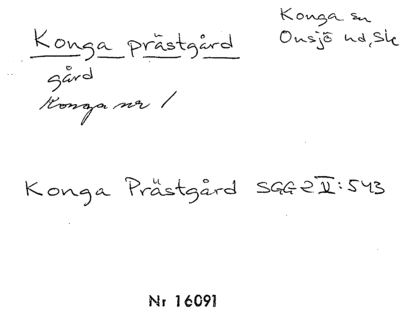 Konga prästgård
gård
Konga nr 1
Konga sn
Onsjö hd, Sk
Konga Prästgård SGG 2 V:543
Nr 16091